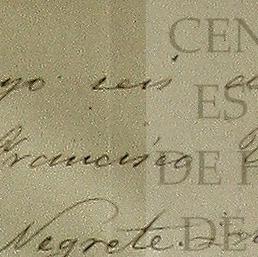 yo seis de
Francisco
Negrete.
CEN
ES
DE
DE